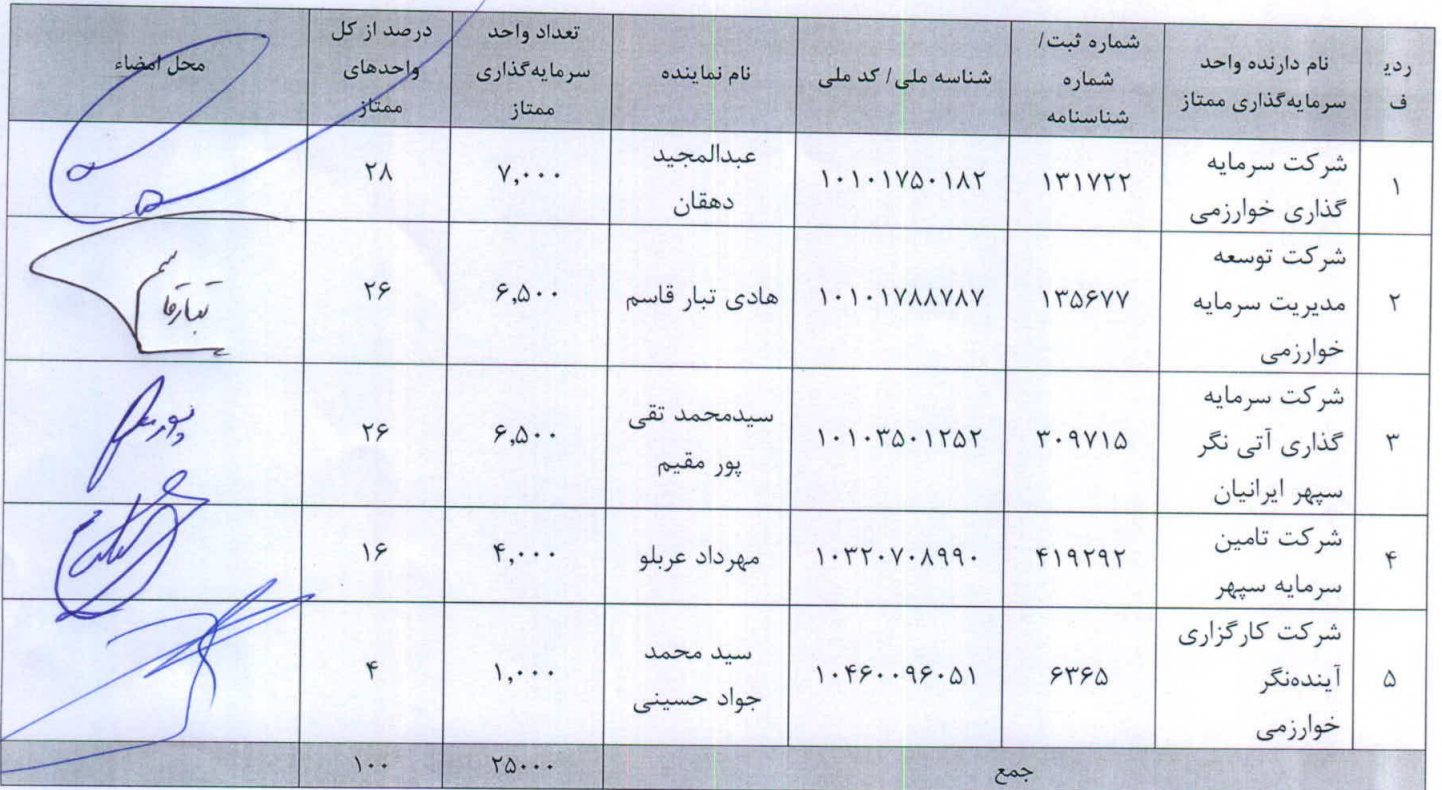 ردیف
نام دارنده واحد سرمایه‌گذاری ممتاز
شماره ثبت/ شماره شناسنامه
شناسه ملی/ کد ملی
نام نماینده
تعداد واحد سرمایه‌گذاری ممتاز
درصد از کل واحدهای ممتاز
محل امضاء
۱
شرکت سرمایه گذاری خوارزمی
۱۳۱۷۲۲
۱۰۱۰۱۷۵۰۱۸۲
عبدالمجید دهقان
۷,۰۰۰
۲۸
۲
شرکت توسعه مدیریت سرمایه خوارزمی
۱۳۵۶۷۷
۱۰۱۰۱۷۸۸۷۸۷
هادی تبار قاسم
۶,۵۰۰
۲۶
۳
شرکت سرمایه گذاری آتی نگر سپهر ایرانیان
۳۰۹۷۱۵
۱۰۱۰۳۵۰۱۲۵۲
سیدمحمد تقی پور مقیم
۶,۵۰۰
۲۶
۴
شرکت تامین سرمایه سپهر
۴۱۹۲۹۲
۱۰۳۲۰۷۰۸۹۹۰
مهرداد عربلو
۴,۰۰۰
۱۶
۵
شرکت کارگزاری آینده‌نگر خوارزمی
۶۳۶۵
۱۰۴۶۰۰۹۶۰۵۱
سید محمد جواد حسینی
۱,۰۰۰
۴
جمع
۲۵۰۰۰
۱۰۰